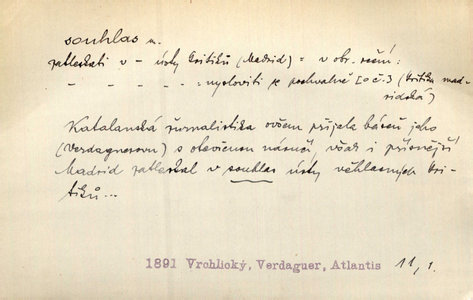 souhlas m.
zatleskati v – ústy kritiků (Madrid) = v obr. rčení:
– – – – – : vysloviti se pochvalně [o č. 3 (kritika mad-
ridská)
Katalanská žurnalistika ovšem přijala báseň jeho
(Verdaguerovu) s otevřenou náručí, však i přísnější
Madrid zatleskal v souhlas ústy věhlasných kri-
tiků...
1891 Vrchlický, Verdaguer, Atlantis 11, 1.